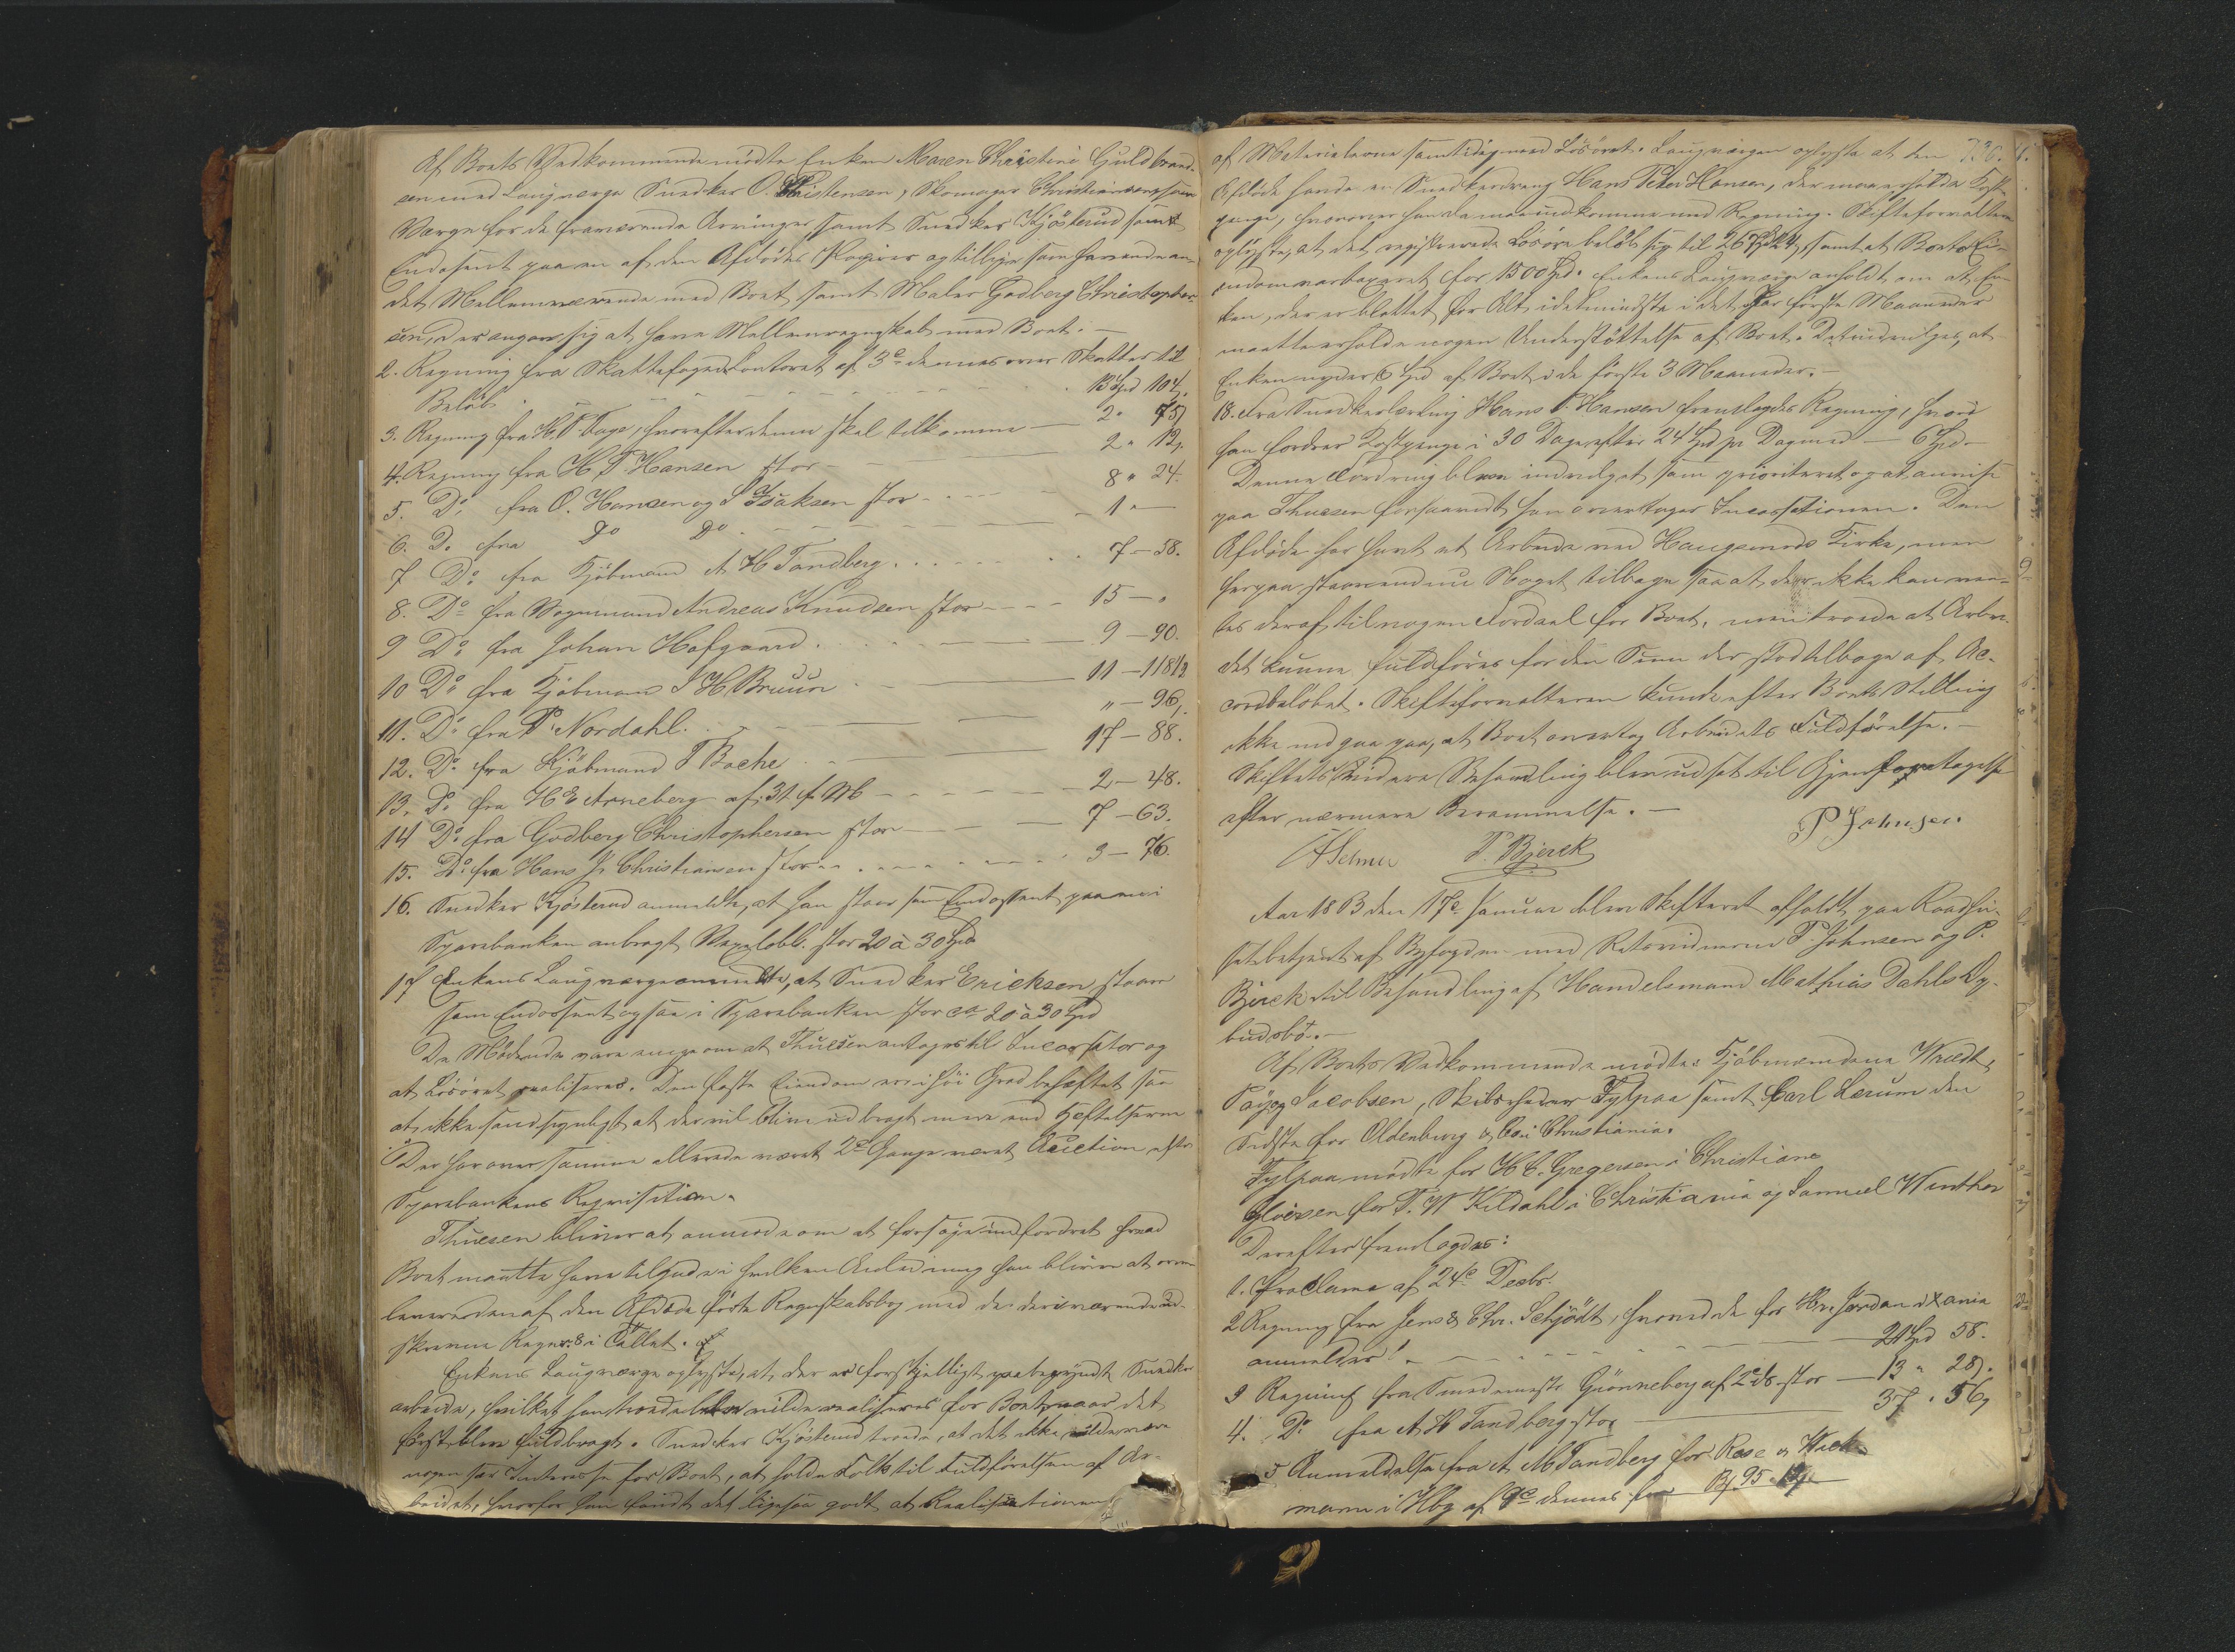 Af Boets Vedkommende mødte Enken Maren Christine Guldbrand-
sen med Laugværge Snedker O. Christensen, Skomager Christiansen som
Værge for de fraværende Arvinger, samt Snedker Kjösterud som
Endosent paa en af den Afdødes Papirer og tillige som havende an-
det Mellemværende med Boet samt Maler Godberg Christopher-
sen, der angav sig at have Mellemregnskab med Boet. —
2. Regning fra Skattefogedcontoret af 3e dennes over Skatter til
Beløb 13 Spd 104
3. Regning fra H. P. Fage, hvorefter denne skal tilkomme — 2 " 75
4. Regning fra H. P. Hansen stor — 2 " 12
5. Do. fra O. Hansen og S Isaksen stor — 8 " 24.
6. Do fra Do Do — 1 " —
7 Do fra Kjöbmand A H Tandberg 7 — 58.
8. Do fra Vognmand Andreas Knudsen stor — 15 — "
9 Do fra Johan Hofgaard 9 — 90.
10 Do fra Kjöbmand S H Bruun 11 — 118 1/2
11. Do fra P. Nordahl. " — 96
12. Do fra Kjöbmand T Bache 17 — 88.
13. Do fra H E Arneberg af 31 f. M 2 — 48.
14 Do fra Godberg Christophersen stor — 7 — 63.
15. Do fra Hans J. Christiansen stor 3 — 76.
16. Snedker Kjösterud anmeldte, at han staar som Endossent paa en i
Sparebanken anbragt Vexelobl. stor 20 à 30 Spd
17 Enkens Laugværge anmeldte, at Snedker Ericksen staar
som Endossent ogsaa i Sparebanken stor ca 20 à 30 Spd
De Mødende vare enige om at Thuesen antages til Incassator og
at Løsøret realiseres. Den faste Eiendom er i høi Grad behæftet saa
at ikke sandsynligt at der vil blive udbragt mere end Heftelserne
Der har over samme allerede været 2de Gange været Auction efter
Sparebankens Reqvisition.
Thuesen bliver at anmode om at forsøge indfordret hvad
Boet maatte have tilgode i hvilken Anledning han bliver at over-
levere den af den Afdøde førte Regnskabsbog med de deri værende ud-
skrevne Regn: 8 i Tallet.
Enkens Laugværge oplyste, at der er forskjelligt paabegyndt Snedker
arbeide, hvilket han troede vilde realiseres for Boet, naar det
først blev fuldbragt. Snedker Kjösterud troede, at det ikke vilde være
nogen Interesse for Boet, at holde Folk til Fuldførelsen af Ar-
beidet, hvorfor han fandt det ligesaa godt at Realisationen
af Materialerne samtidig med Løsøret. Laugværgen oplyste at den 736.
Afdøde havde en Snedkerdreng Hans Peter Hansen, der maa erholde Kost-
penge, hvorover han da maa indkomme med Regning. Skifteforvalteren
oplyste, at det registrerede Løsøre beløb sig til 267 Spd 24, samt at Boets Ei-
endom var taxeret for 1500 Spd. Enkens Laugværge anholdt om at En-
ken, der er blottet for Alt, idetmindste i det par første Maaneder
maatte erholde nogen Understøttelse af Boet. Det indvilges, at
Enken nyder 6 Spd af Boet i de første 3 Maaneder. —
18. Fra Snedkerlærling Hans P. Hansen fremlagdes Regning, hvori
han fordrer Kostpenge i 30 Dage efter 24 pr Dag med — 6 Spd. —
Denne Fordring blev indvilget som prioriteret og at anvise
paa Thuesen forsaavidt han overtager Incassationen. Den
Afdøde har havt et Arbeide ved Haugsunds Kirke, men
herpaa staar endnu Noget tilbage saa at der ikke kan ven-
tes deraf til nogen Fordeel for Boet, men troede at Arbei-
det kunne fuldføres for den Sum der stod tilbage af Ac-
cordbeløbet. Skifteforvalteren kunde efter Boets Stilling
ikke indgaa paa, at Boet overtog Arbeidets Fuldførelse. —
Skiftets videre Behandling blev udsat til Gjenforetagelse
efter nærmere Berammelse. —
P. Bjerck P Johnsen
Aar 1863 den 17e Januar blev Skifteret afholdt paa Raadhu-
set betjent af Byfogden med Retsvidnerne P. Johnsen og P.
Bjerck til Behandling af Handelsmand Mathias Dahls Op-
budsbo. —
Af Boets Vedkommende mødte: Kjöbmændene Wredt,
Jacobsen, Skibsrheder Fylpaa samt Carl Lærum den
Sidste for Oldenburg & Co i Christiania.
Fylpaa mødte for H C. Gregersen i Christiania
for T. W Kildahl i Christiania og Samuel Winther
Derefter fremlagdes:
1. Proclama af 24e Decbr.
2 Regning fra Jens & Chr. Schjödt, hvorved de for Hr. Jordan i Xania
anmelder — 21 Spd 58.
3 Regning fra Smedmester Grönneberg af 2 ds stor — 13 " 28
4. Do fra A H Tandberg stor 37 " 56
5 Anmeldelse fra A M Tandberg for Rose & Wieck-
mann i Hbg af 9e dennes for B/ 95